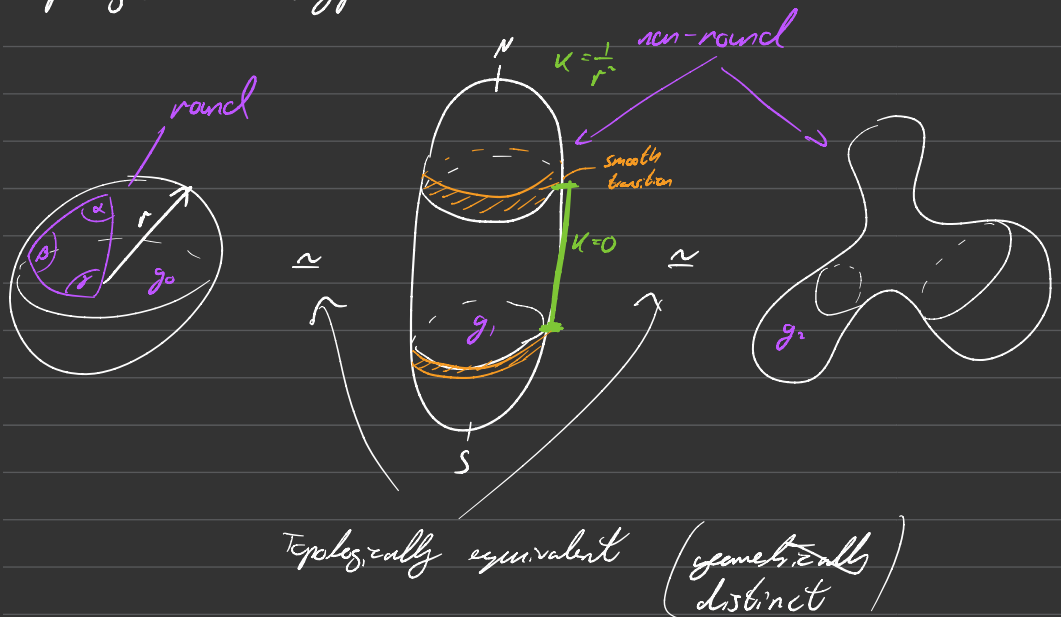 non-round
N
K = 1/r²
round
smooth
transition
α
r
β
γ
g₀
K=0
≃
≃
g₁
g₂
S
Topologically equivalent
(geometrically
distinct)